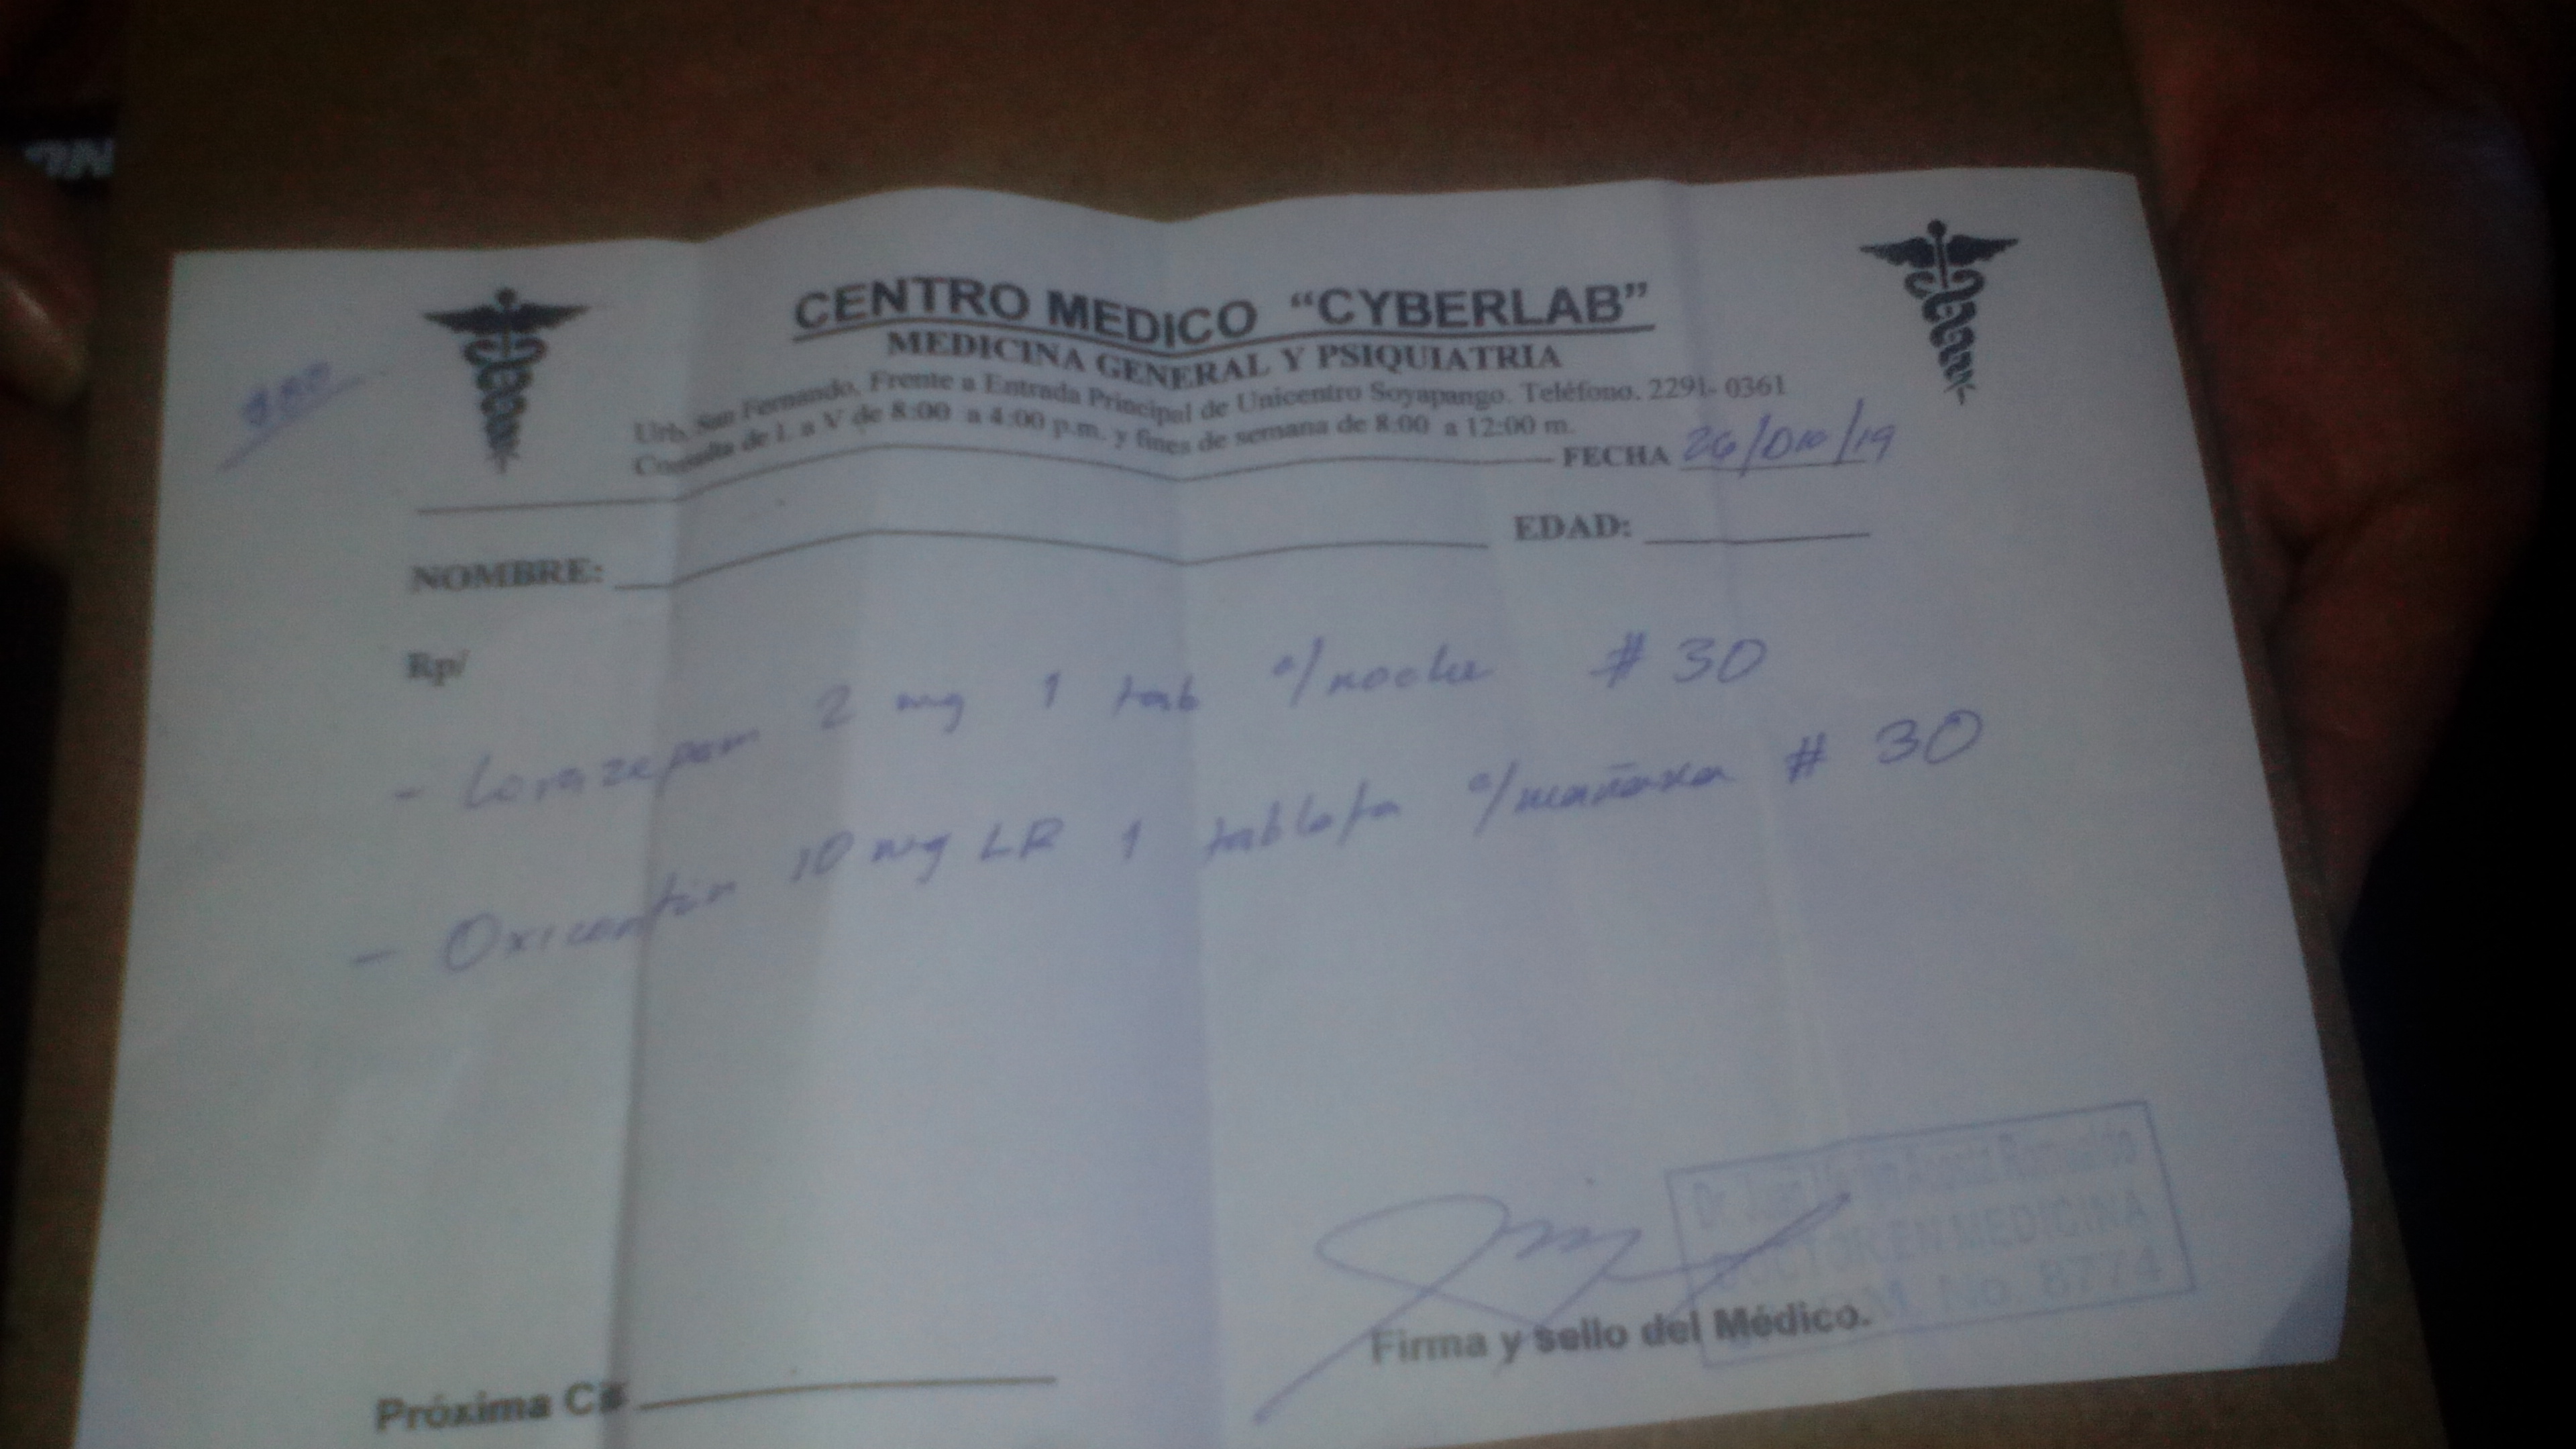 CENTRO MEDICO “CYBERLAB”
MEDICINA GENERAL Y PSIQUIATRIA
Urb. San Fernando, Frente a Entrada Principal de Unicentro Soyapango. Teléfono. 2291- 0361
Consulta de L a V de 8:00 a 4:00 p.m. y fines de semana de 8:00 a 12:00 m.
FECHA 26/Dic/19
NOMBRE: EDAD:
Rp/
- Lorazepam 2 mg 1 tab c/noche # 30
- Oxicontin 10 mg LR 1 tableta c/mañana # 30
Dr.
DOCTOR EN MEDICINA
No. 8774
Firma y sello del Médico.
Próxima